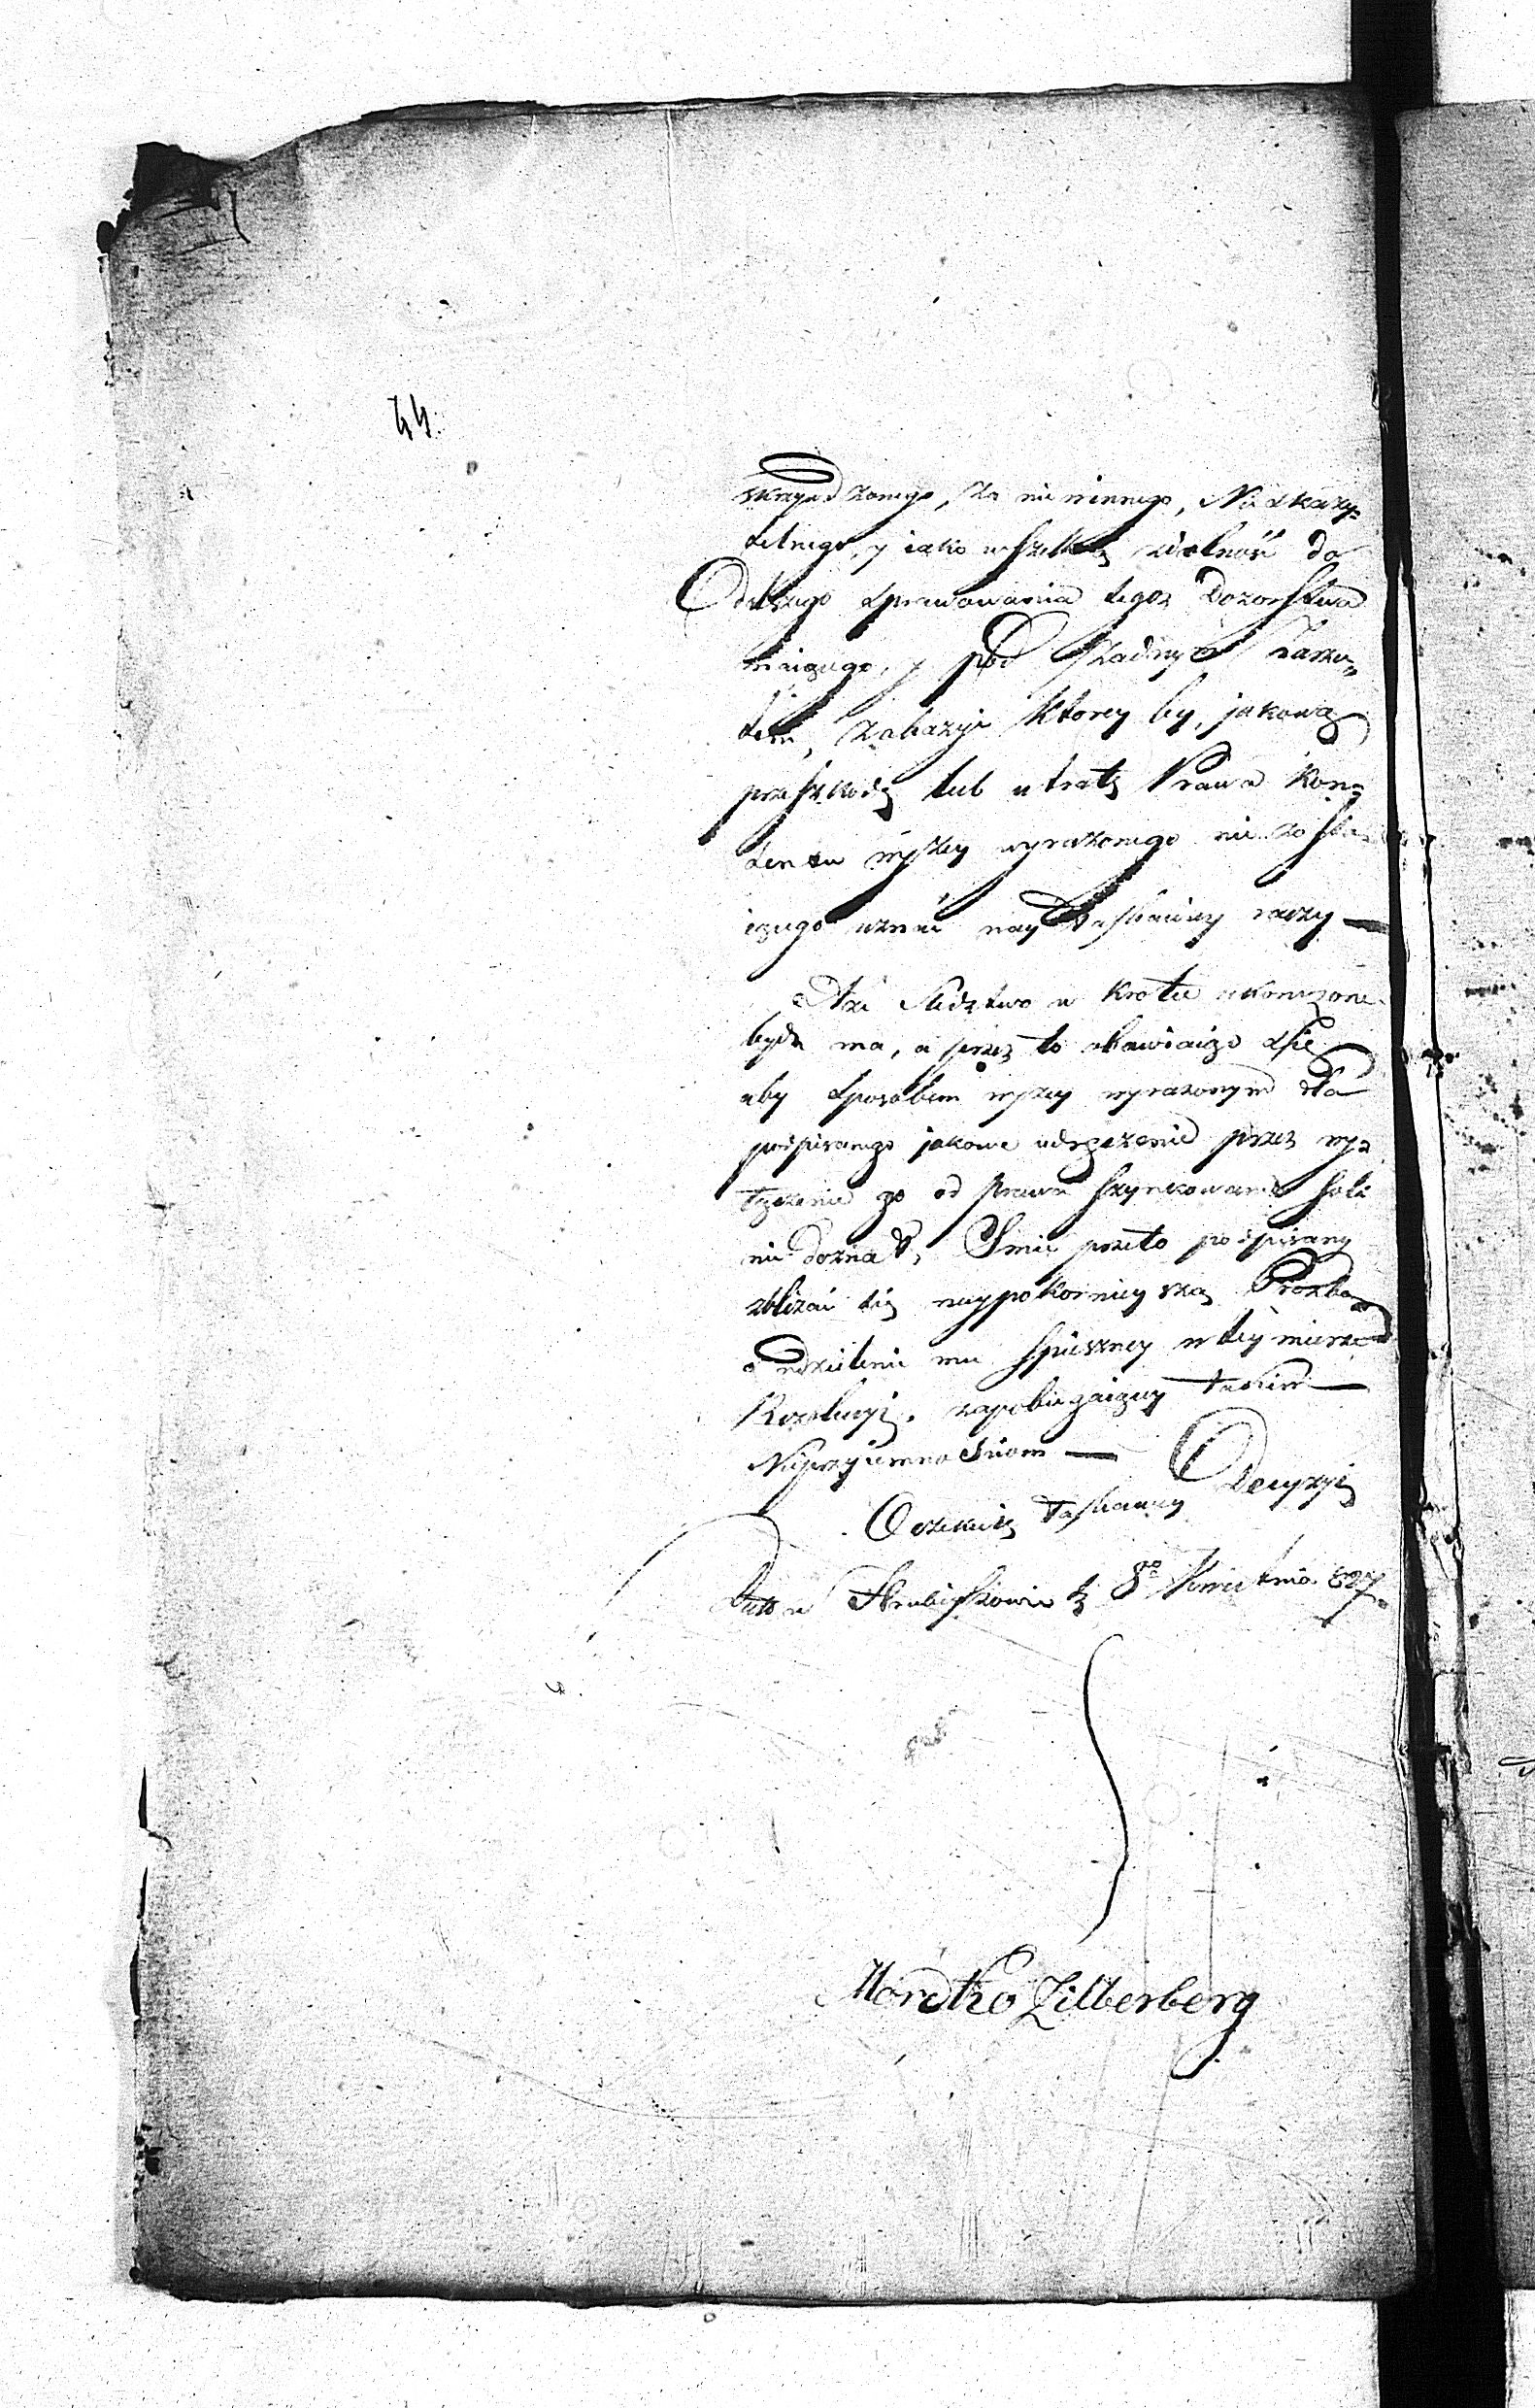 44.
skrzywdzonego, za niewinnego, Nieskazy=
telnego, y iako wszelką wolność do
Dalszego sprawowania tegoz Dozorstwa
maiącego, y pod żadnym zarzu=
tem, Kabażyi ktorey by, jakową
przeszkodę lub utratę Prawa Kon=
sensu wyżey wyrażonego nie zosta=
iącego uznać nay Łaskawiey raczy —
Aże Sledztwo w krotce ukonczone
bydz ma, a przez to obawiaiąc sie
aby sposobem wyzey wyrazonym dla
podpisanego jakowe udręczenie przez wy=
łączenie go od prawa szynkowania Soli
nie doznał, Smie przeto podpisany
zblizać się naypokornieyszą Prozbą
o udzielenie mu spieszney w tey mierze
Rezolucyi, zapobiegaiącey takim
Nieprzyiemnosciom —
Oczekuię Łaskawey Decyzyi
Datt w Hrubieszowie d 8go Kwietnia 827.
Mordko Zilberberg